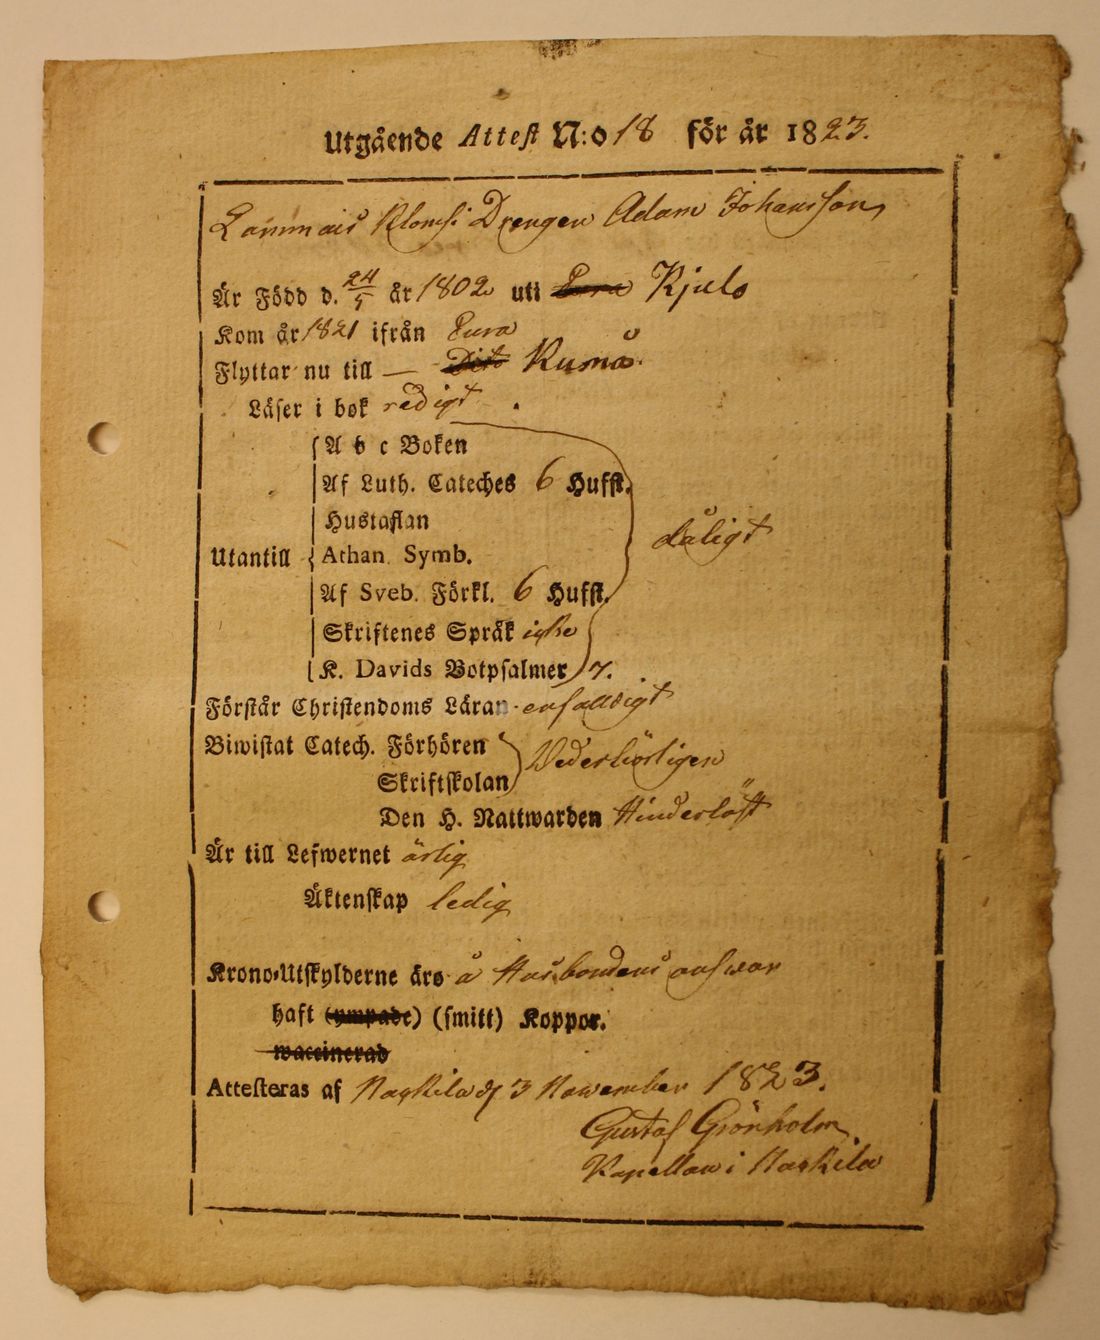 Utgående Attest N:o 18 för år 1823.
Lammais Klomsi Drengen Adam Johansson
Är Född d. 24/5 år 1802 uti Eura Kjulo
Kom år 1821 ifrån Eura
Flyttar nu till — Dito Kumå
Läser i bok redigt .
A b c Boken
Af Luth. Cateches 6 Hufst.
Hustaflan
dåligt
Utantill Athan. Symb.
Af Sveb. Förkl. 6 Hufst.
Skriftenes Språk icke
K. Davids Botpsalmer 7.
Förstår Christendoms Läran enfalldigt
Biwistat Catech. Förhören
Wederbörligen
Skriftskolan
Den H. Nattwarden Hinderlöst
Är till Lefwernet ärlig
Äktenskap ledig
Krono-Utskylderne äro å Husbondens answar
haft (ympade) (smitt) Koppor.
waccinerad
Attesteras af Naskila d 3 November 1823.
Gustaf Grönholm
Kapellan i Naskila